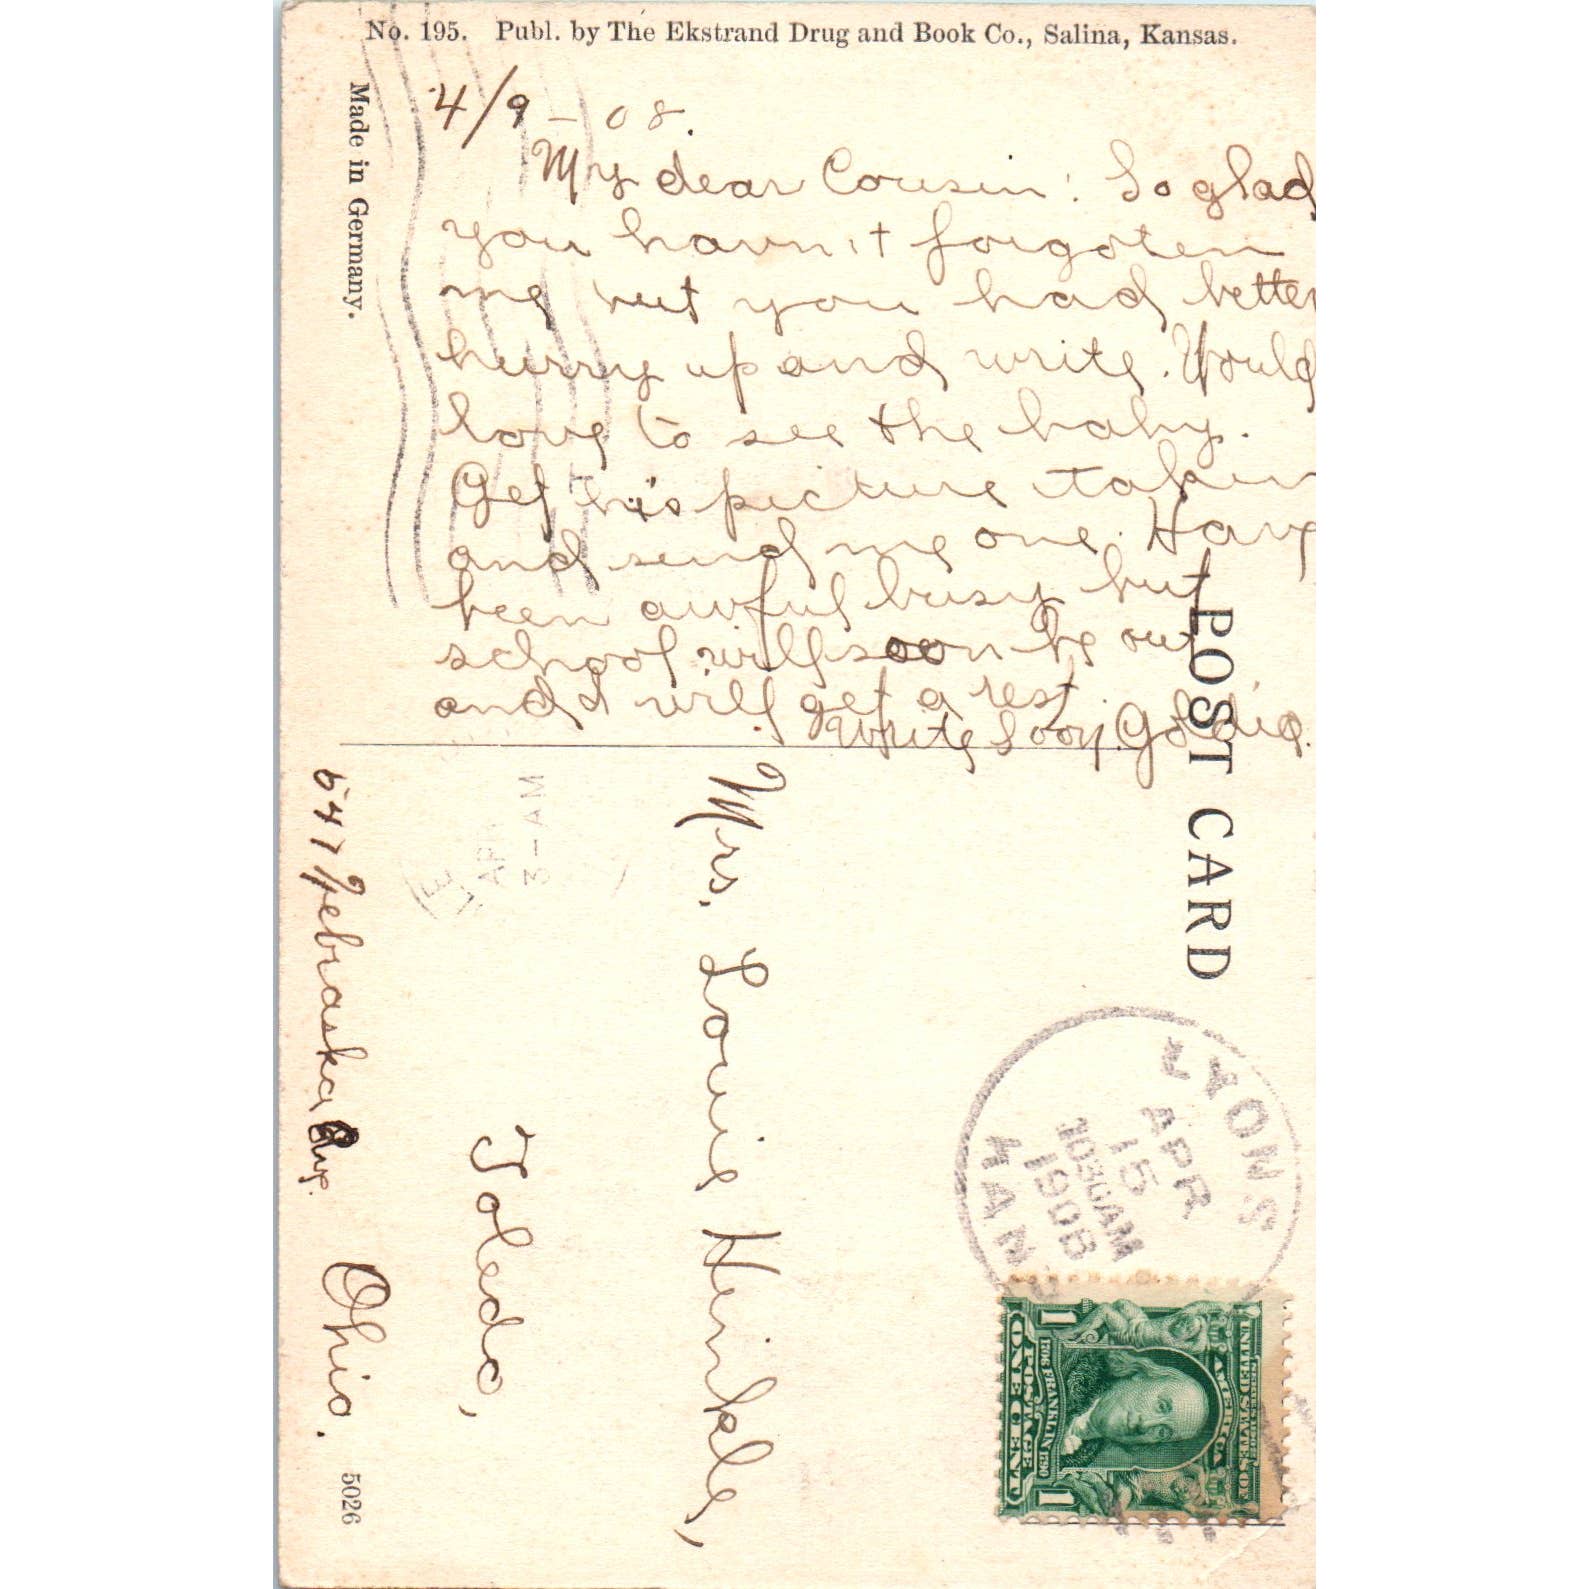 No. 195. Publ. by The Ekstrand Drug and Book Co., Salina, Kansas.
Made in Germany.
4/9 - 08.
My dear Cousin: So glad
you havn't forgoten
me but you had better
hurry up and write. Would
love to see the baby.
Get his picture taken
and send me one. Have
been awful busy but
school will soon be out
and I will get a rest.
Write Soon. Goldie.
POST CARD
Mrs. Louie Heinkle,
Toledo,
Ohio.
547 Nebraska Ave.
5026
LYONS
APR
15
1030AM
1908
KANS
APR
3-AM
UNITED STATES OF AMERICA
FRANKLIN
POSTAGE
ONE CENT
1 1